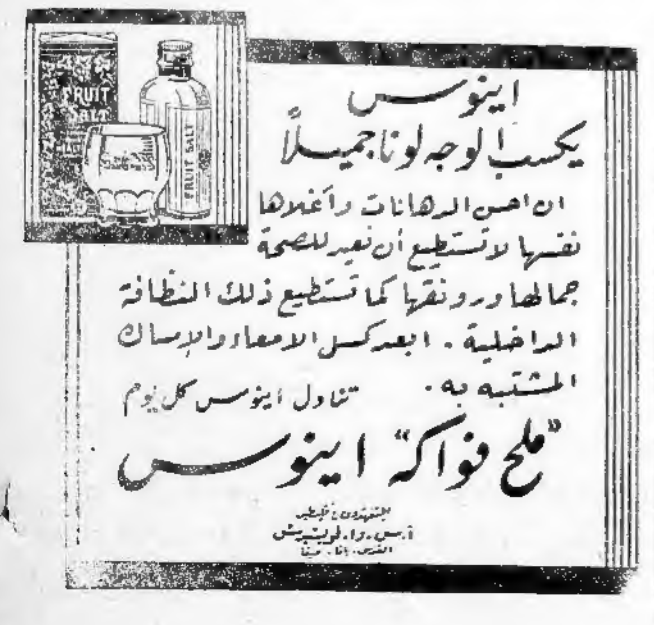 FRUIT
SALT
FRUIT SALT
اينوس
يكسب الوجه لونا جميلاً
ان احسن الدهانات وأغلاها
نفسها لا تستطيع أن تعيد للصحة
جمالها ورونقها كما تستطيع ذلك النظافة
الداخلية . ابعد كسل الامعاء والإمساك
المشتبه به . تناول اينوس كل يوم
"ملح فواكه" اينوس
المتعهدون في فلسطين
القدس . يافا . حيفا